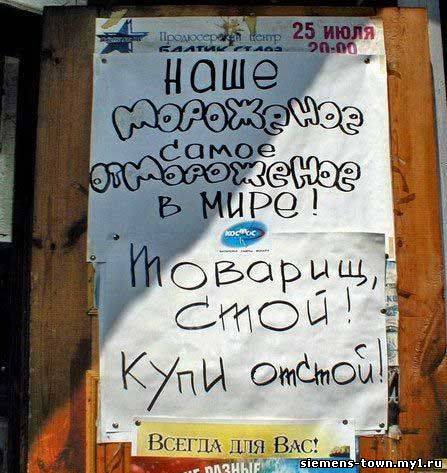 Продюсерский центр
25 июля
20-00
Наше
мороженое
самое
отмороженое
в мире!
КОСМОС
Товарищ,
стой!
Купи отстой!
Всегда для Вас!
РАЗНЫЕ
siemens-town.my1.ru